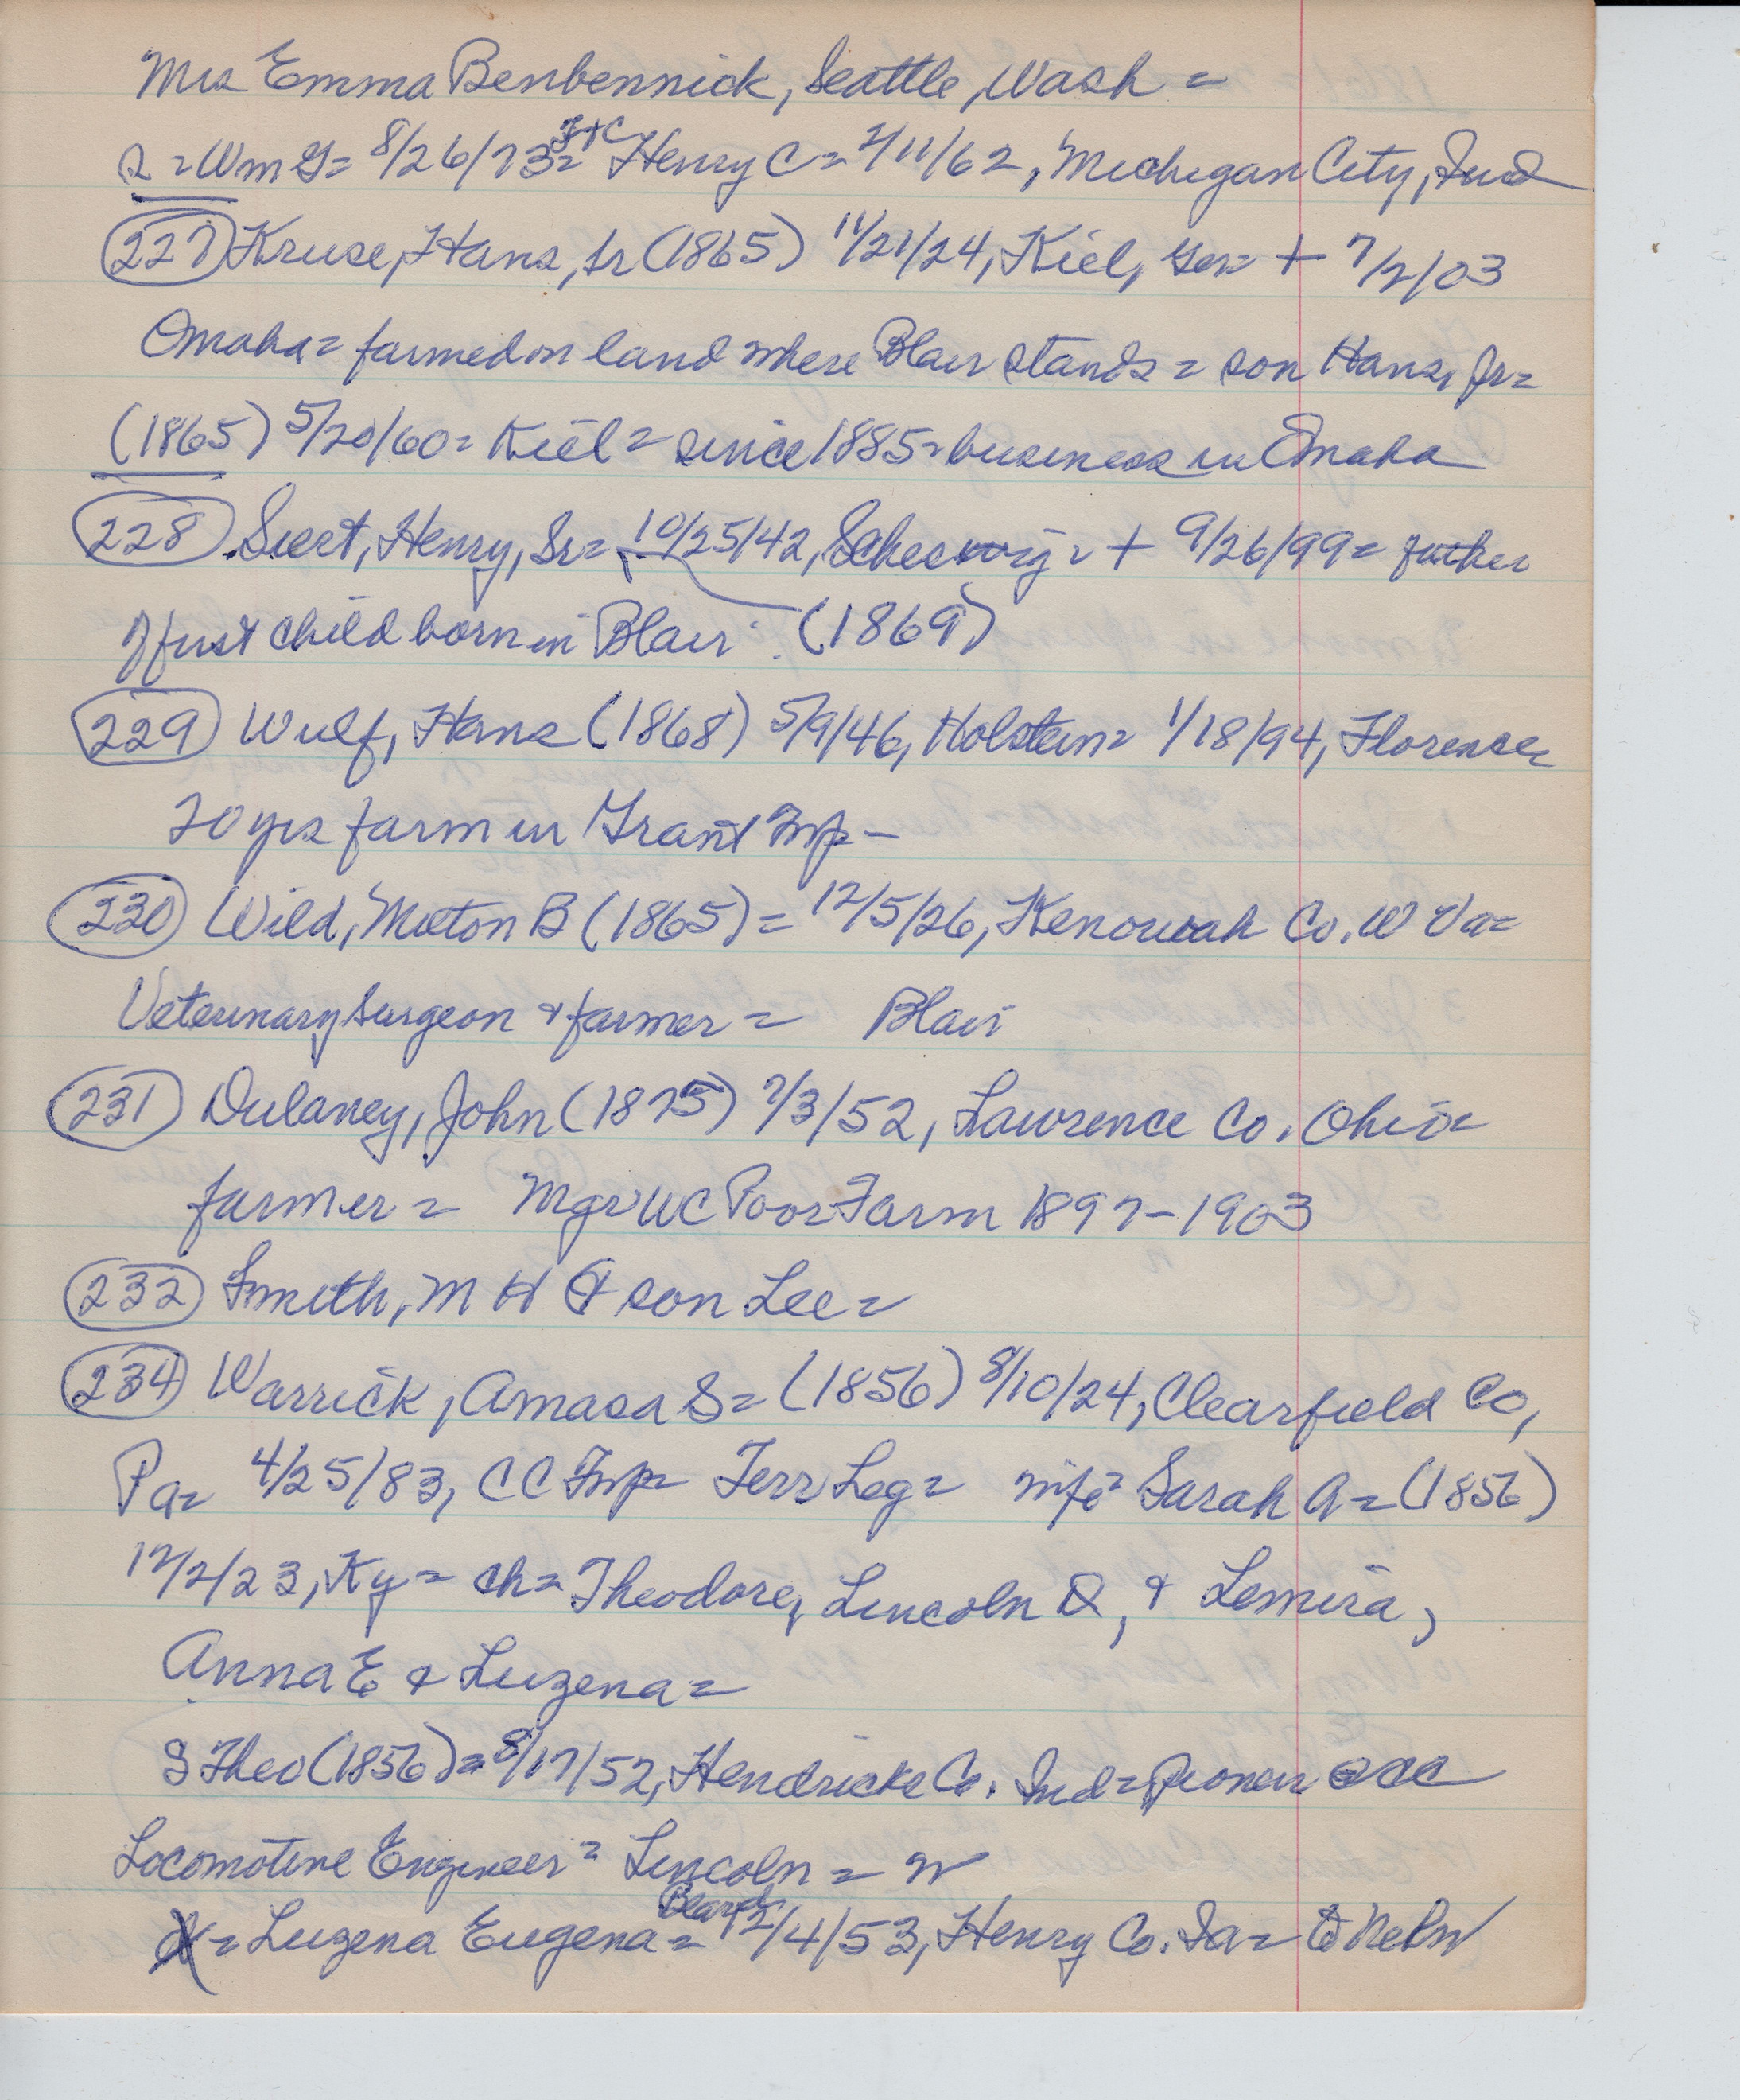 Mrs Emma Benbennick, Seattle, Wash =
s = Wm G = 8/26/73 = F+C Henry C = 2/11/62, Michigan City, Ind
227 Kruse, Hans, Sr (1865) 11/21/24, Kiel, Ger = + 7/2/03
Omaha = farmed on land where Blair stands = son Hans, Jr =
(1865) 5/20/60 = Kiel = since 1885 = business in Omaha
228 Siert, Henry, Sr = 10/25/42, Scheswig = + 9/26/99 = father
of first child born in Blair (1869)
229 Wulf, Hans (1868) 5/9/46, Holstein = 1/18/94, Florence
20 yrs farm in Grant Twp -
230 Wild, Milton B (1865) = 12/5/26, Kenowah Co. W Va =
Veterinary Surgeon & farmer = Blair
231 Dulaney, John (1875) 7/3/52, Lawrence Co. Ohio =
farmer = Mgr WC Poor Farm 1897-1903
232 Smith, M H & son Lee =
234 Warrick, Amasa S = (1856) 8/10/24, Clearfield Co,
Pa = 4/25/83, CC Twp = Terr Leg = wife = Sarah A = (1856)
12/2/23, Ky = ch = Theodore, Lincoln D, & Lemira,
Anna E & Luzena =
S Theo (1856) = 8/17/52, Hendricks Co. Ind = Pioneer CC
Locomotive Engineer = Lincoln = N
= Luzena Eugena = Beard 12/4/53, Henry Co. Ia = to Nebr